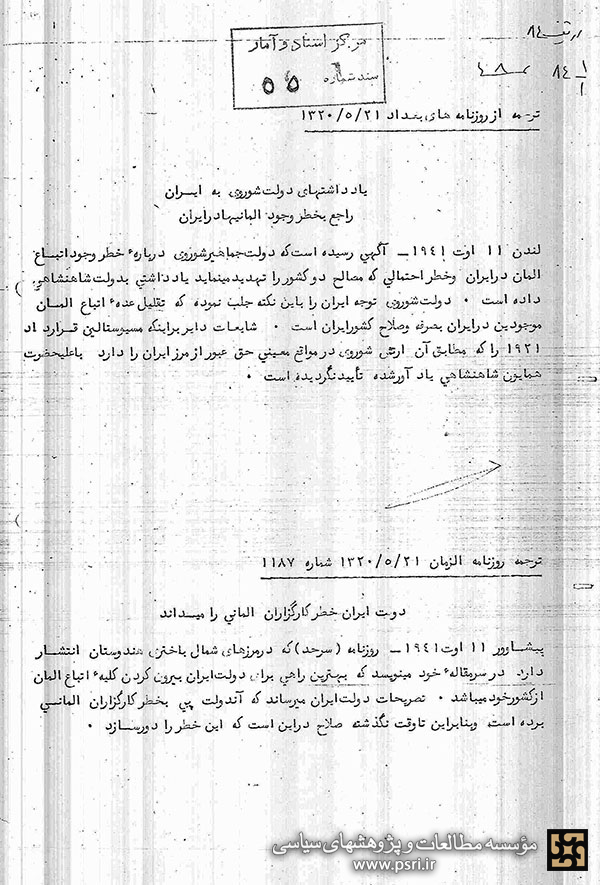 مرکز اسناد و آمار
سند شماره
ترجمه از روزنامه های بغداد ۱۳۲۰/۵/۲۱
یادداشتهای دولت شوروی به ایران
راجع بخطر وجود المانیها در ایران
لندن ۱۱ اوت ۱۹۴۱ ــ آگهی رسیده است که دولت جماهیر شوروی درباره خطر وجود اتباع
المان در ایران وخطر احتمالی که مصالح دو کشور را تهدید مینماید یادداشتی بدولت شاهنشاهی
داده است ۰ دولت شوروی توجه ایران را باین نکته جلب نموده که تقلیل عده اتباع المان
موجودین در ایران بصرفه وصلاح کشور ایران است ۰ شایعات دایر براینکه مسیوستالین قرارداد
۱۹۲۱ را که مطابق آن ارتش شوروی در مواقع معینی حق عبور از مرز ایران را دارد باعلیحضرت
همایون شاهنشاهی یاد آور شده تأیید نگردیده است ۰
ترجمه روزنامه الزمان ۱۳۲۰/۵/۲۱ شماره ۱۱۸۷
دولت ایران خطر کارگزاران المانی را میداند
پیشاوور ۱۱ اوت ۱۹۴۱ ــ روزنامه (سرحد) که در مرزهای شمال باختری هندوستان انتشار
دارد در سرمقاله خود مینویسد که بهترین راهی برای دولت ایران بیرون کردن کلیه اتباع المان
از کشور خود میباشد ۰ تصریحات دولت ایران میرساند که آندولت پی بخطر کارگزاران المانی
برده است وبنابراین تاوقت نگذشته صلاح دراین است که این خطر را دور سازد ۰
مؤسسه مطالعات و پژوهشهای سیاسی
www.psri.ir